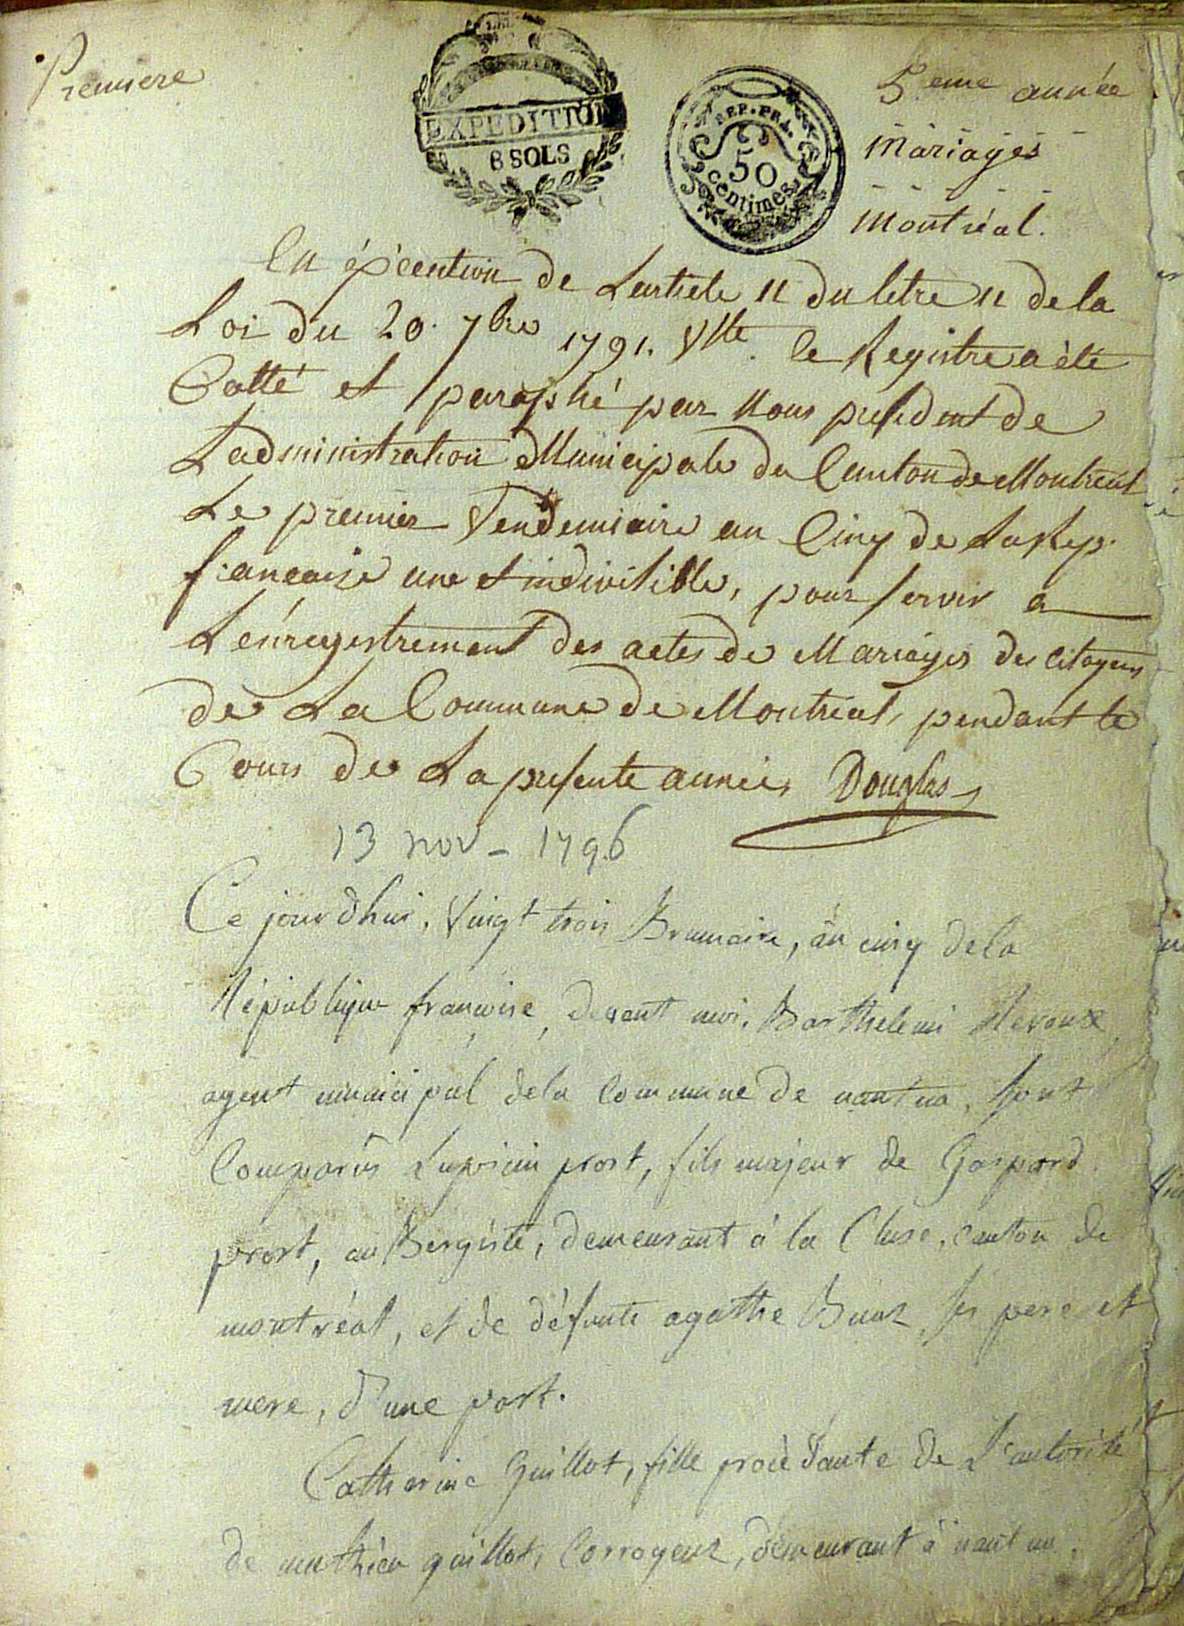 Premiere
EXPEDITION
8 SOLS
REP. FRA.
50
centimes
5eme année
Mariages
Montréal.
En éxécution de Larticle 11 du titre 11 de la
Loi du 20. 7bre 1791. Vlle. le Registre a été
Cotté et paraphé par Nous president de
Ladministration Municipale du Canton de Montreal
Le premier Vendemiaire an Cinq de La Rep.
francaise une et indivisible, pour servir a
L'énregistrement des actes de Mariages des Citoyens
de La Commune de Montreal, pendant le
Cours de La presente année, Douglas
13 nov - 1796
Ce jourdhui, Vingt trois Brumaire, an cinq de la
République françoise, devant moi, Barthelemi
agent municipal de la Commune de nantua, sont
Comparus prost, fils majeur de Gaspard
prost, auBergiste, demeurant à la Cluse, canton de
montréal, et de défunte agathe ses pere et
mere, d'une part.
Catherine Guillot, fille procèdante de L'autorité
de mathieu guillot, Corroyeur, demeurant à nantua.